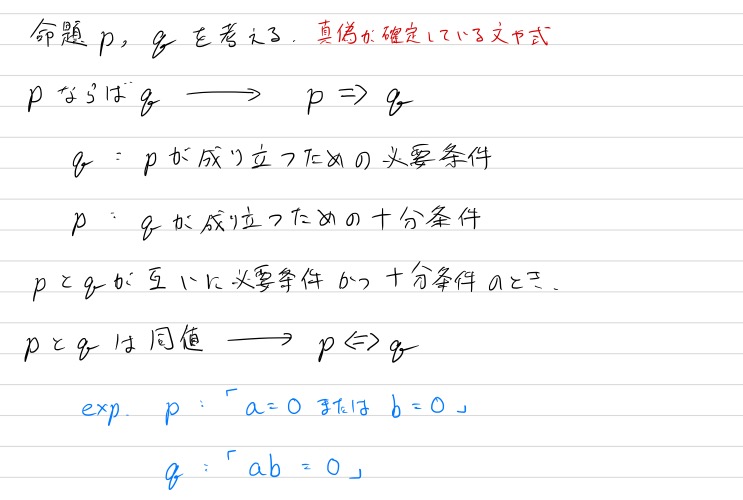 命題 p, q を考える. 真偽が確定している文や式
p ならば q ⟶ p ⇒ q
q : p が成り立つための必要条件
p : q が成り立つための十分条件
p と q が互いに必要条件かつ十分条件のとき.
p と q は同値 ⟶ p ⇔ q
exp. p : 「a = 0 または b = 0」
q : 「ab = 0」